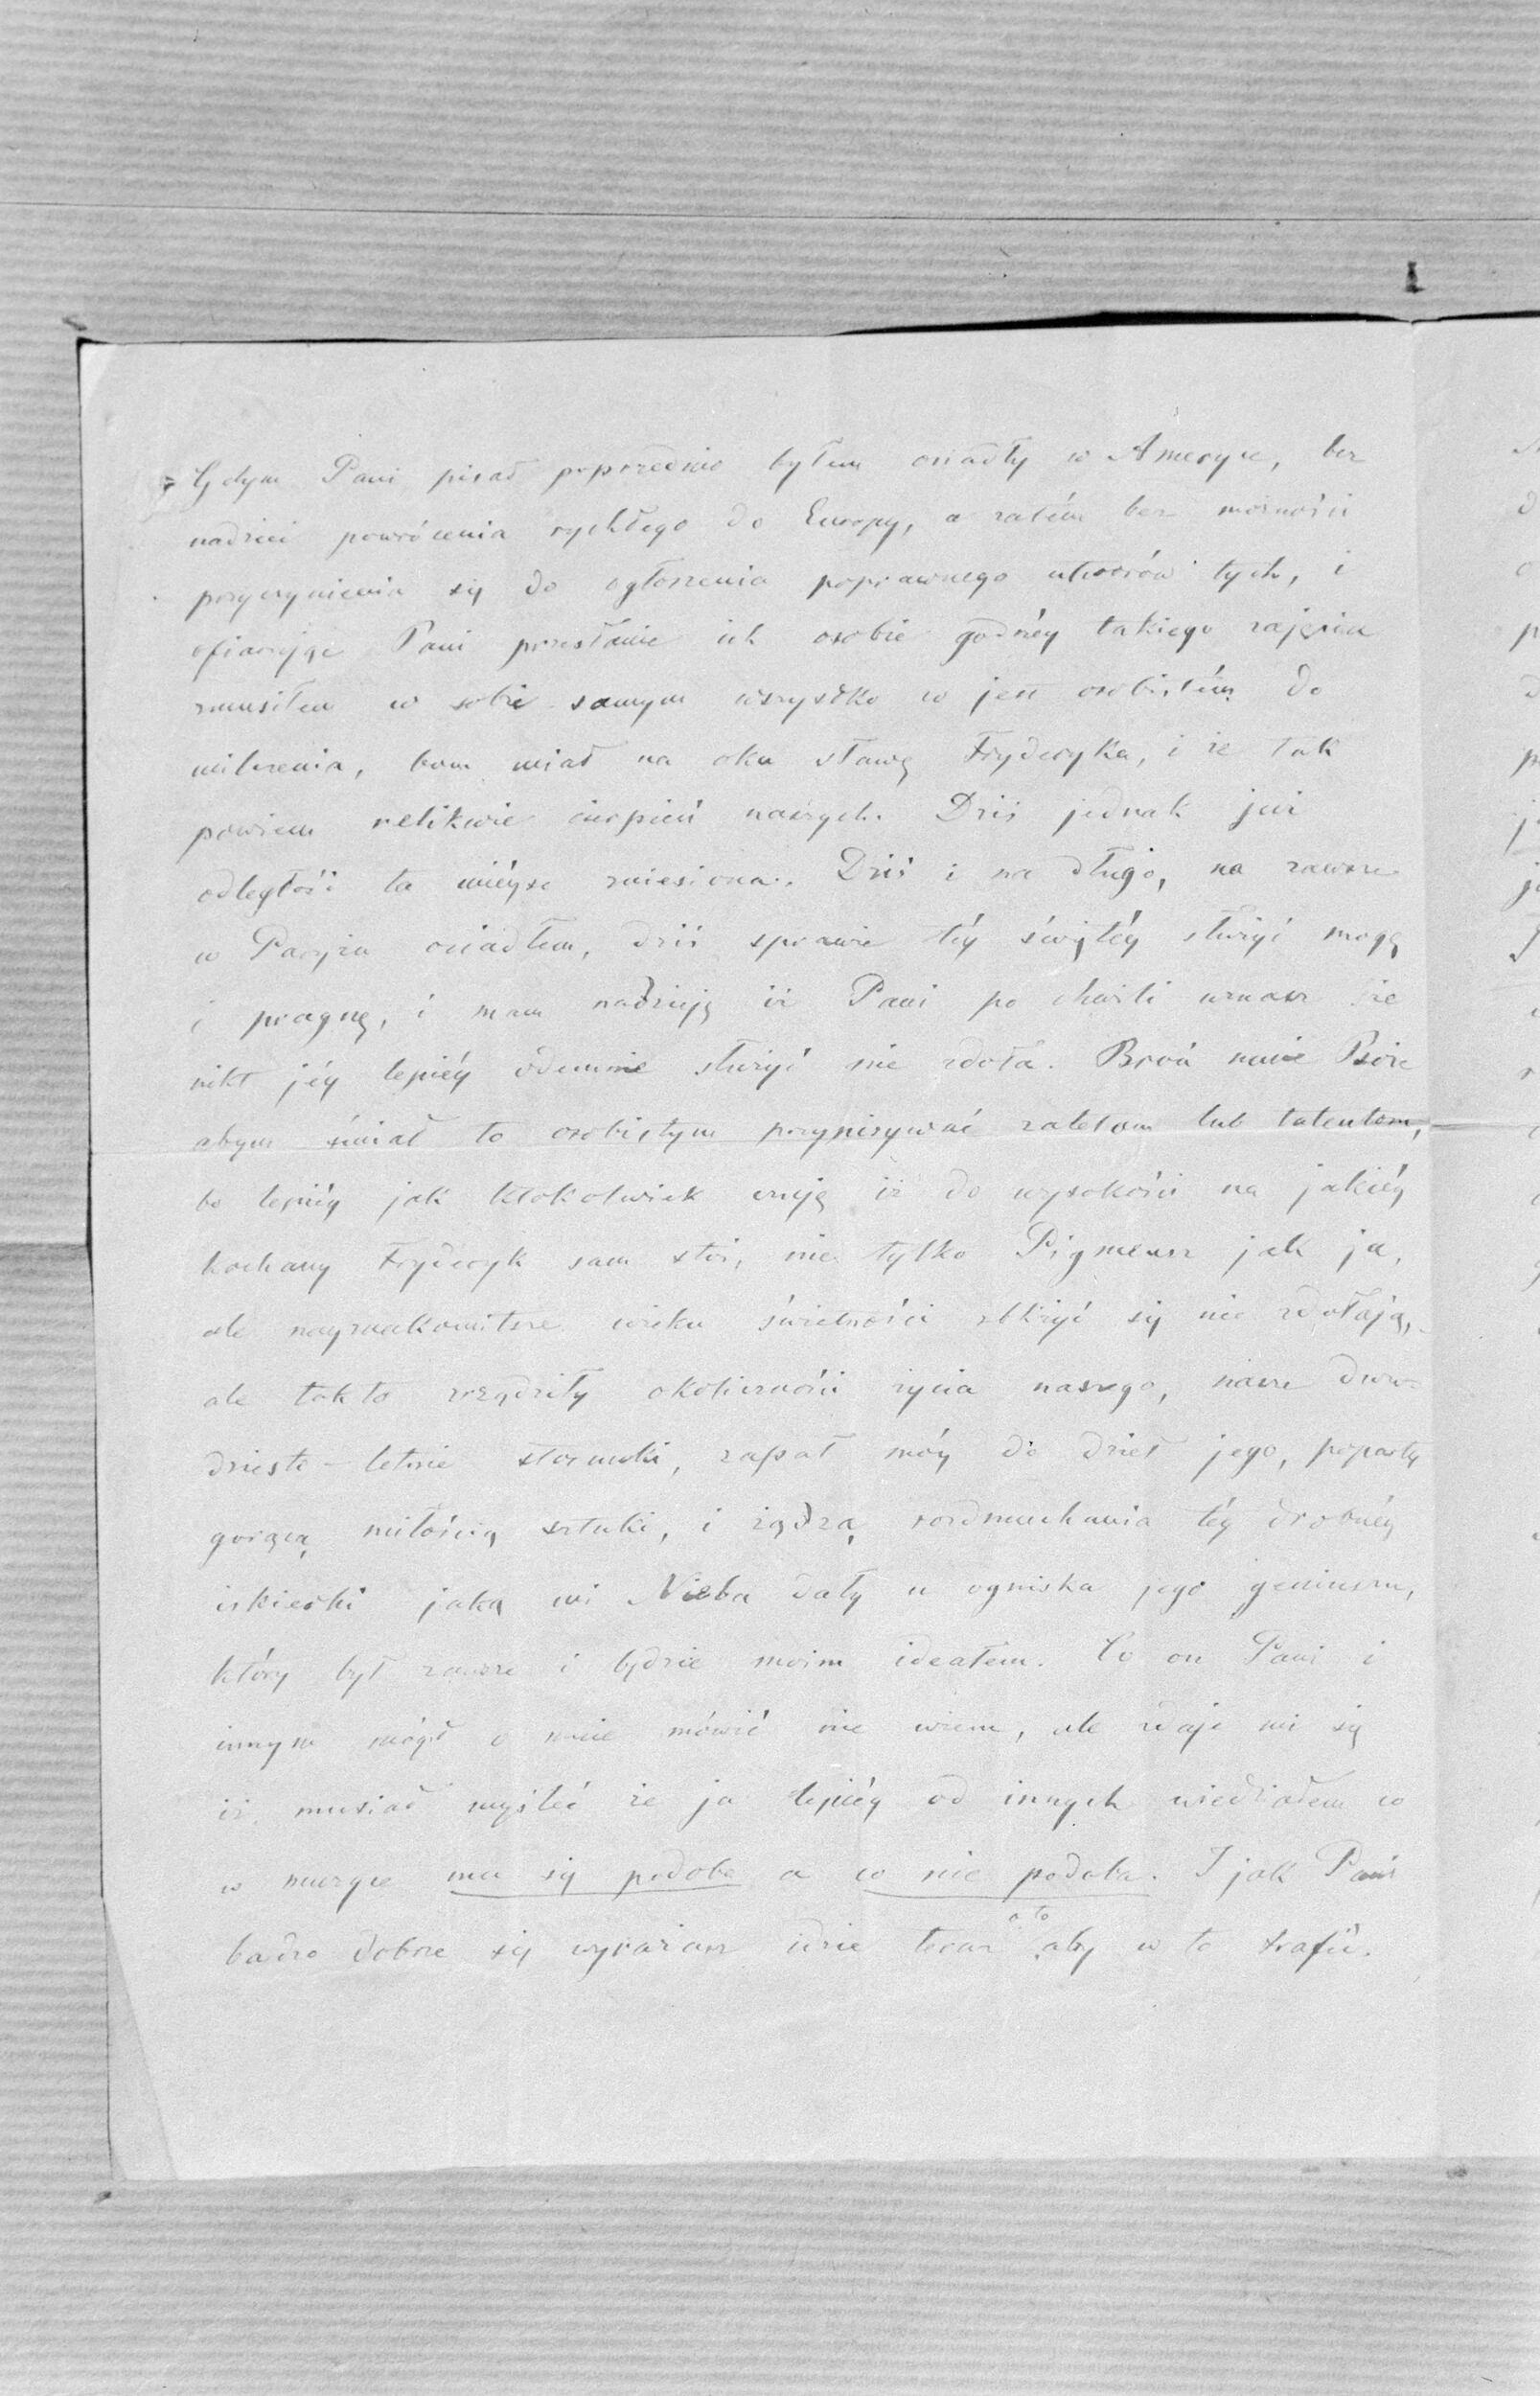 Gdym Pani pisał poprzednio byłem osiadły w Ameryce, bez
nadziei powrócenia rychłego do Europy, a zatém bez możności
przyczynienia się do ogłoszenia poprawnego utworów tych, i
ofiarując Pani przesłanie ich osobie godnéy takiego zajęcia
zmusiłem w sobie samym wszystko co jest osobistém do
milczenia, bom miał na oku sławę Fryderyka, i że tak
powiem relikwie cierpień naszych. Dziś jednak już
odległość ta więcéy zniesiona. Dziś i na długo, na zawsze
w Paryżu osiadłem, dziś sprawie téy świętéy służyć mogę
i pragnę, i mam nadzieję iż Pani po chwili uznasz że
nikt jéy lepiéy odemnie służyć nie zdoła. Broń mnie Boże
abym śmiał to osobistym przypisywać zaletom lub talentom,
bo lepiéy jak ktokolwiek czuję iż do wysokości na jakiéy
kochany Fryderyk sam stoi, nie tylko Pigmeusz jak ja,
ale nayznakomitsze wieku świetności zbliżyć się nie zdołają,
ale tak to zrządziły okoliczności życia naszego, nasze dwu-
dziesto-letnie stosunki, zapał móy do dzieł jego, poparty
gorącą miłością sztuki, i żądzą rozdmuchania téy drobnéy
iskierki jaką mi Nieba dały u ogniska jego geniuszu,
który był zawsze i będzie moim ideałem. Co on Pani i
innym mógł o mnie mówić nie wiem, ale zdaje mi się
iż musiał myśleć że ja lepiéy od innych wiedziałem co
w muzyce mu się podoba a co nie podoba. I jak Pani
bardzo dobrze się wyrażasz idzie teraz o to aby w to trafić.